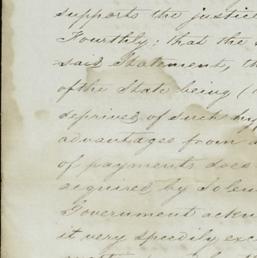 supports the justice
Fourthly: that the
said Statement, th
of the State being (
deprived of such hy
advantages from
of payments does
acquired by Solem
Government ackn
it very speedily exc